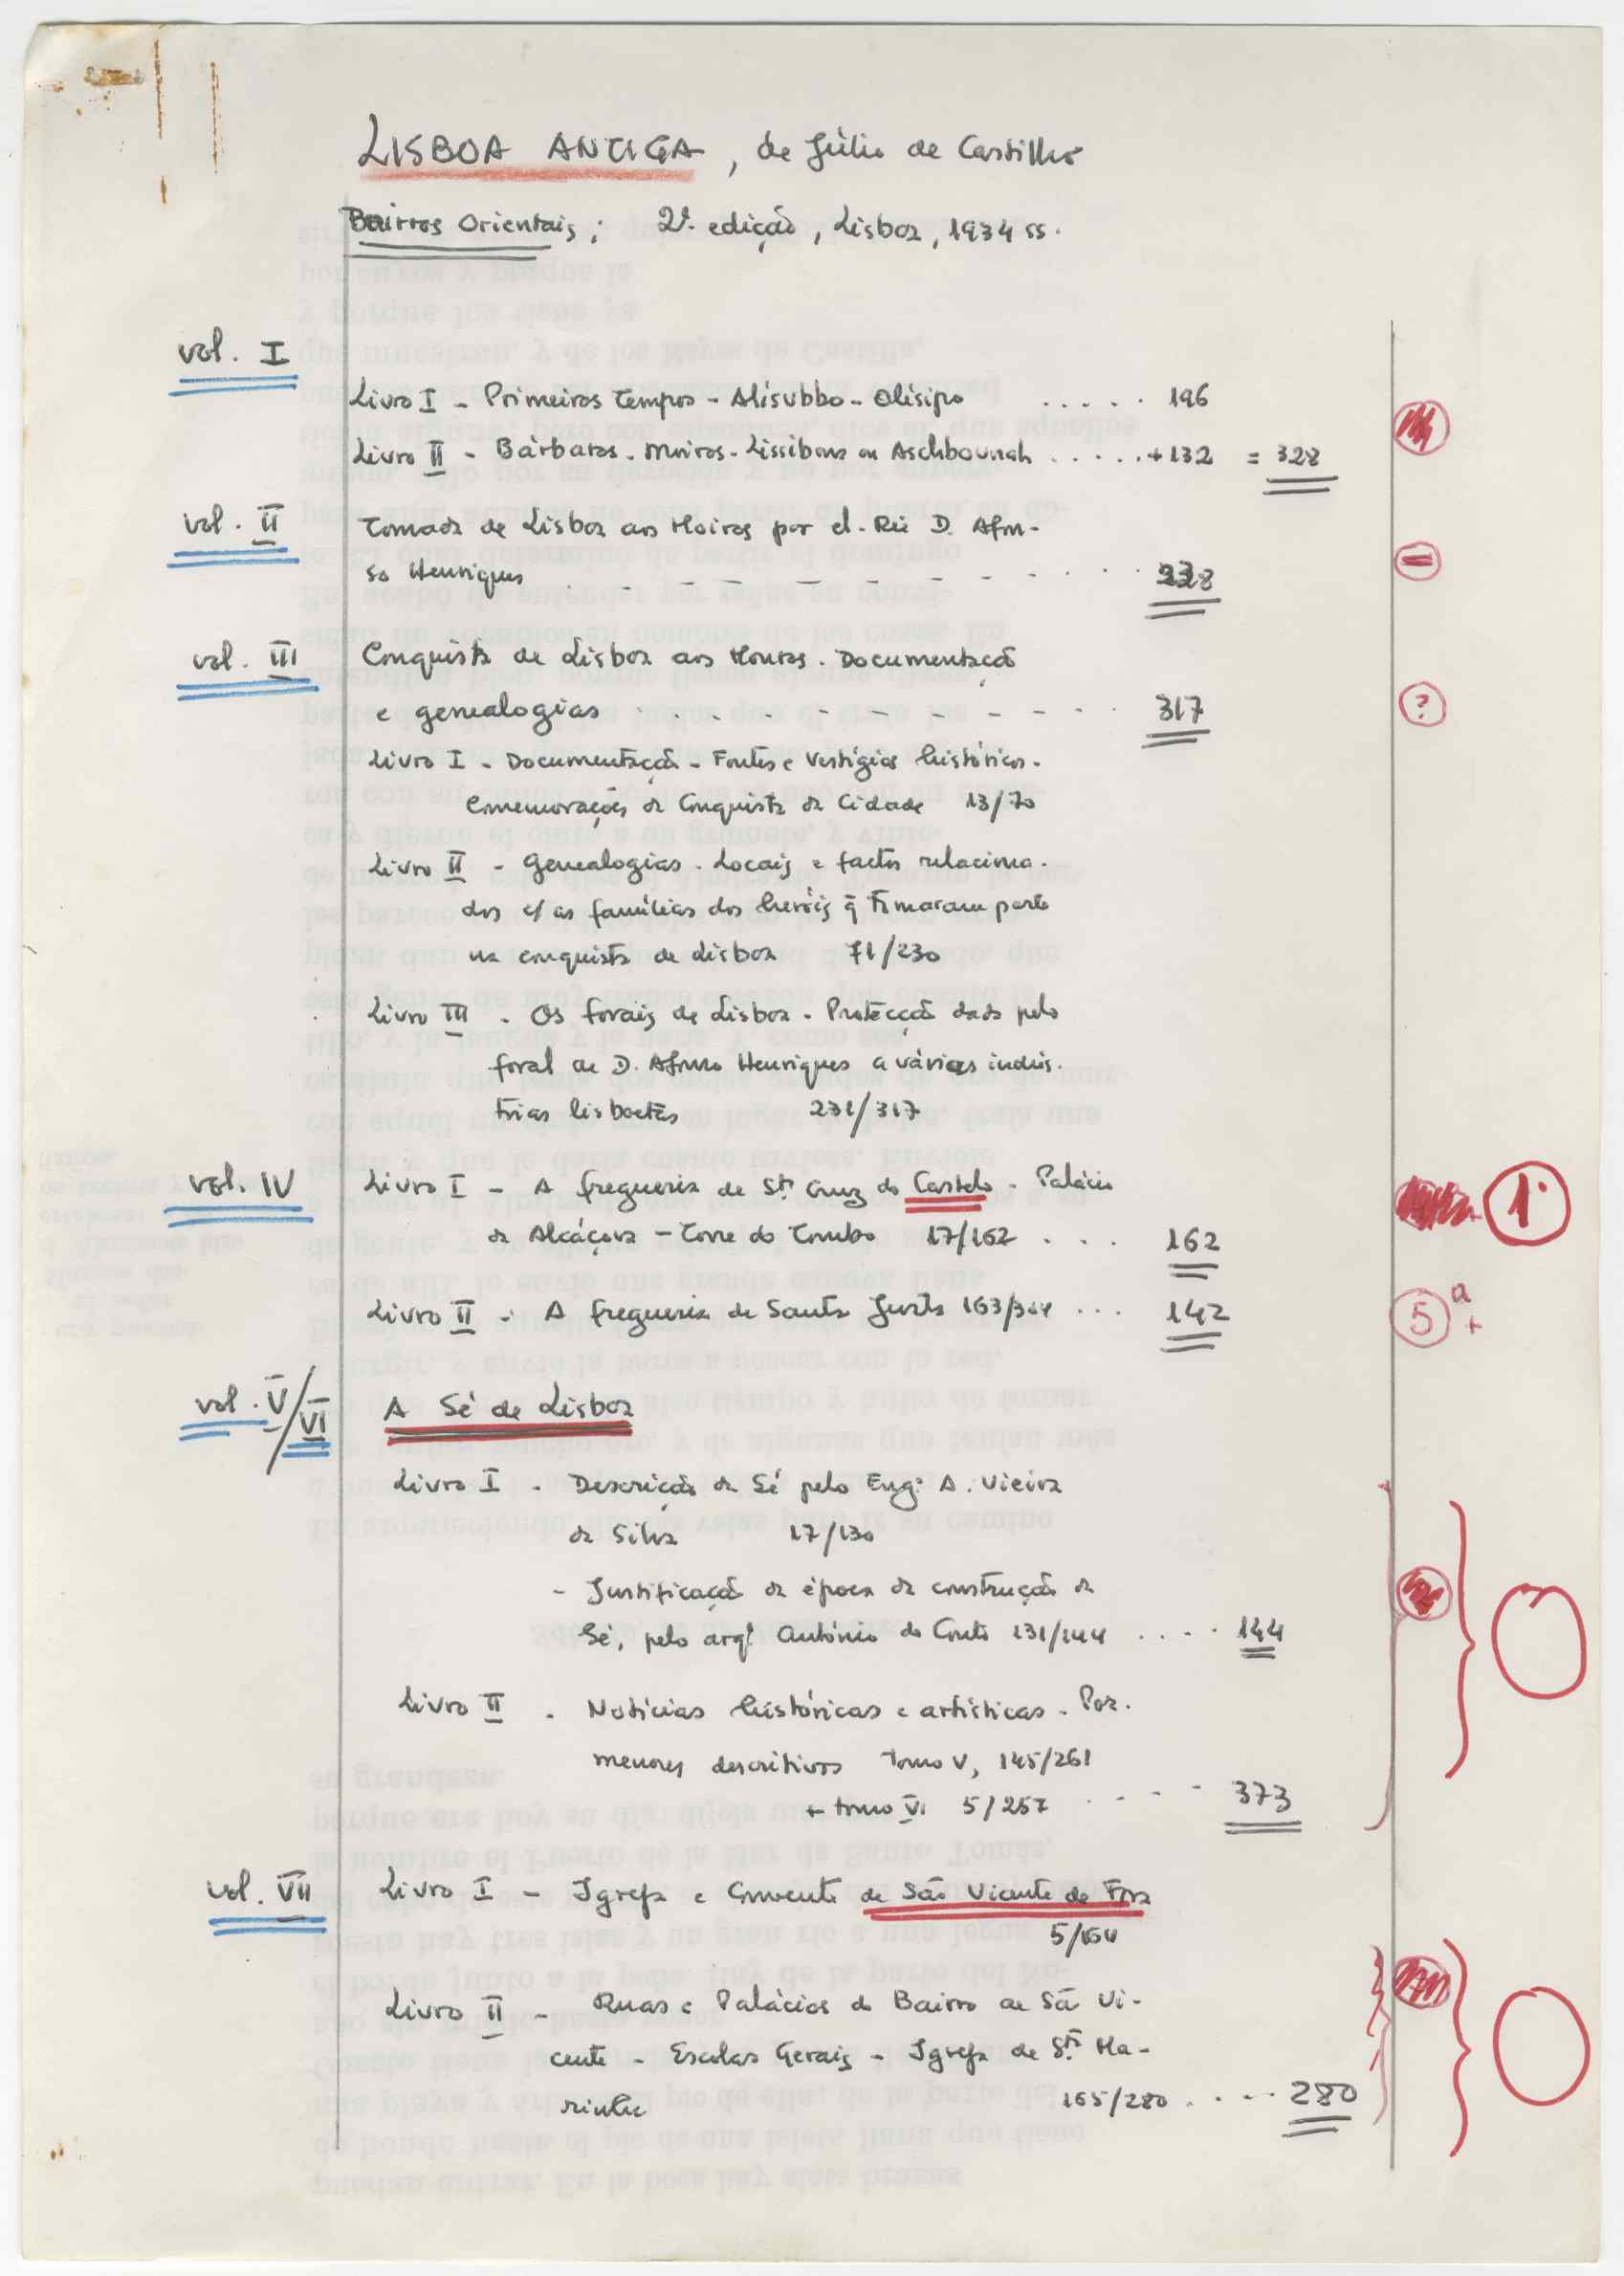 LISBOA ANTIGA, de Júlio de Castilho
Bairros Orientais; 2ª. edição, Lisboa, 1934 ss.
vol. I
Livro I - Primeiros Tempos - Alisubbo - Olisipo ..... 196
Livro II - Bárbaros. Moiros. Lissibona ou Aschbounah .....+132 = 328
vol. II Tomada de Lisboa aos Moiros por el-Rei D. Afon-
so Henriques 228
vol. III Conquista de Lisboa aos Mouros. Documentação
e genealogias 317
?
Livro I - Documentação - Fontes e Vestígios históricos.
Comemorações da Conquista da Cidade 13/70
Livro II - Genealogias. Locais e factos relaciona-
dos c/ as famílias dos heróis q̃ tomaram parte
na conquista de Lisboa 71/230
Livro III - Os forais de Lisboa. Protecção dada pelo
foral de D. Afonso Henriques a várias indús-
trias lisboetas 231/317
vol. IV Livro I - A freguesia de Stª Cruz do Castelo - Palácio
da Alcáçova - Torre do Tombo 17/162 ... 162
1º
Livro II - A freguesia de Santa Justa 163/304 ... 142
5 a +
vol. V/VI A Sé de Lisboa
Livro I - Descrição da Sé pelo Engº A. Vieira
da Silva 17/130
- Justificação da época da construção da
Sé, pelo arqº António do Couto 131/144 .... 144
Livro II - Notícias históricas e artísticas - Por-
menores descritivos Tomo V, 145/261
+ tomo VI 5/257 .... 373
vol. VII Livro I - Igreja e Convento de São Vicente de Fora
5/164
Livro II - Ruas e Palácios do Bairro de São Vi-
cente - Escolas Gerais - Igreja de Stª Ma-
rinha 165/280 .... 280